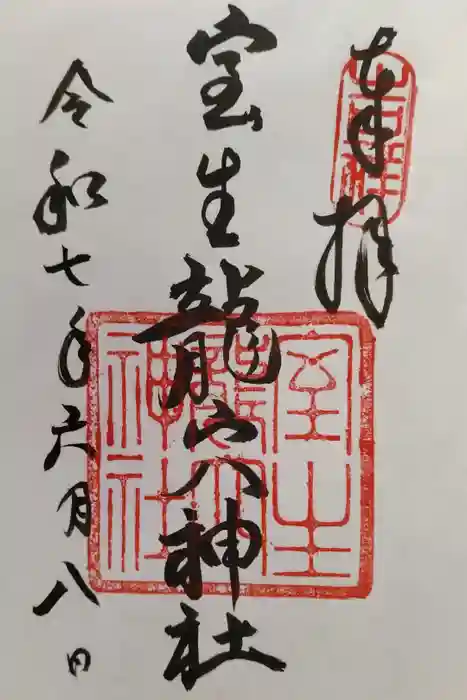 奉拝
室生龍穴神社
令和七年六月八日
室生
龍穴
神社